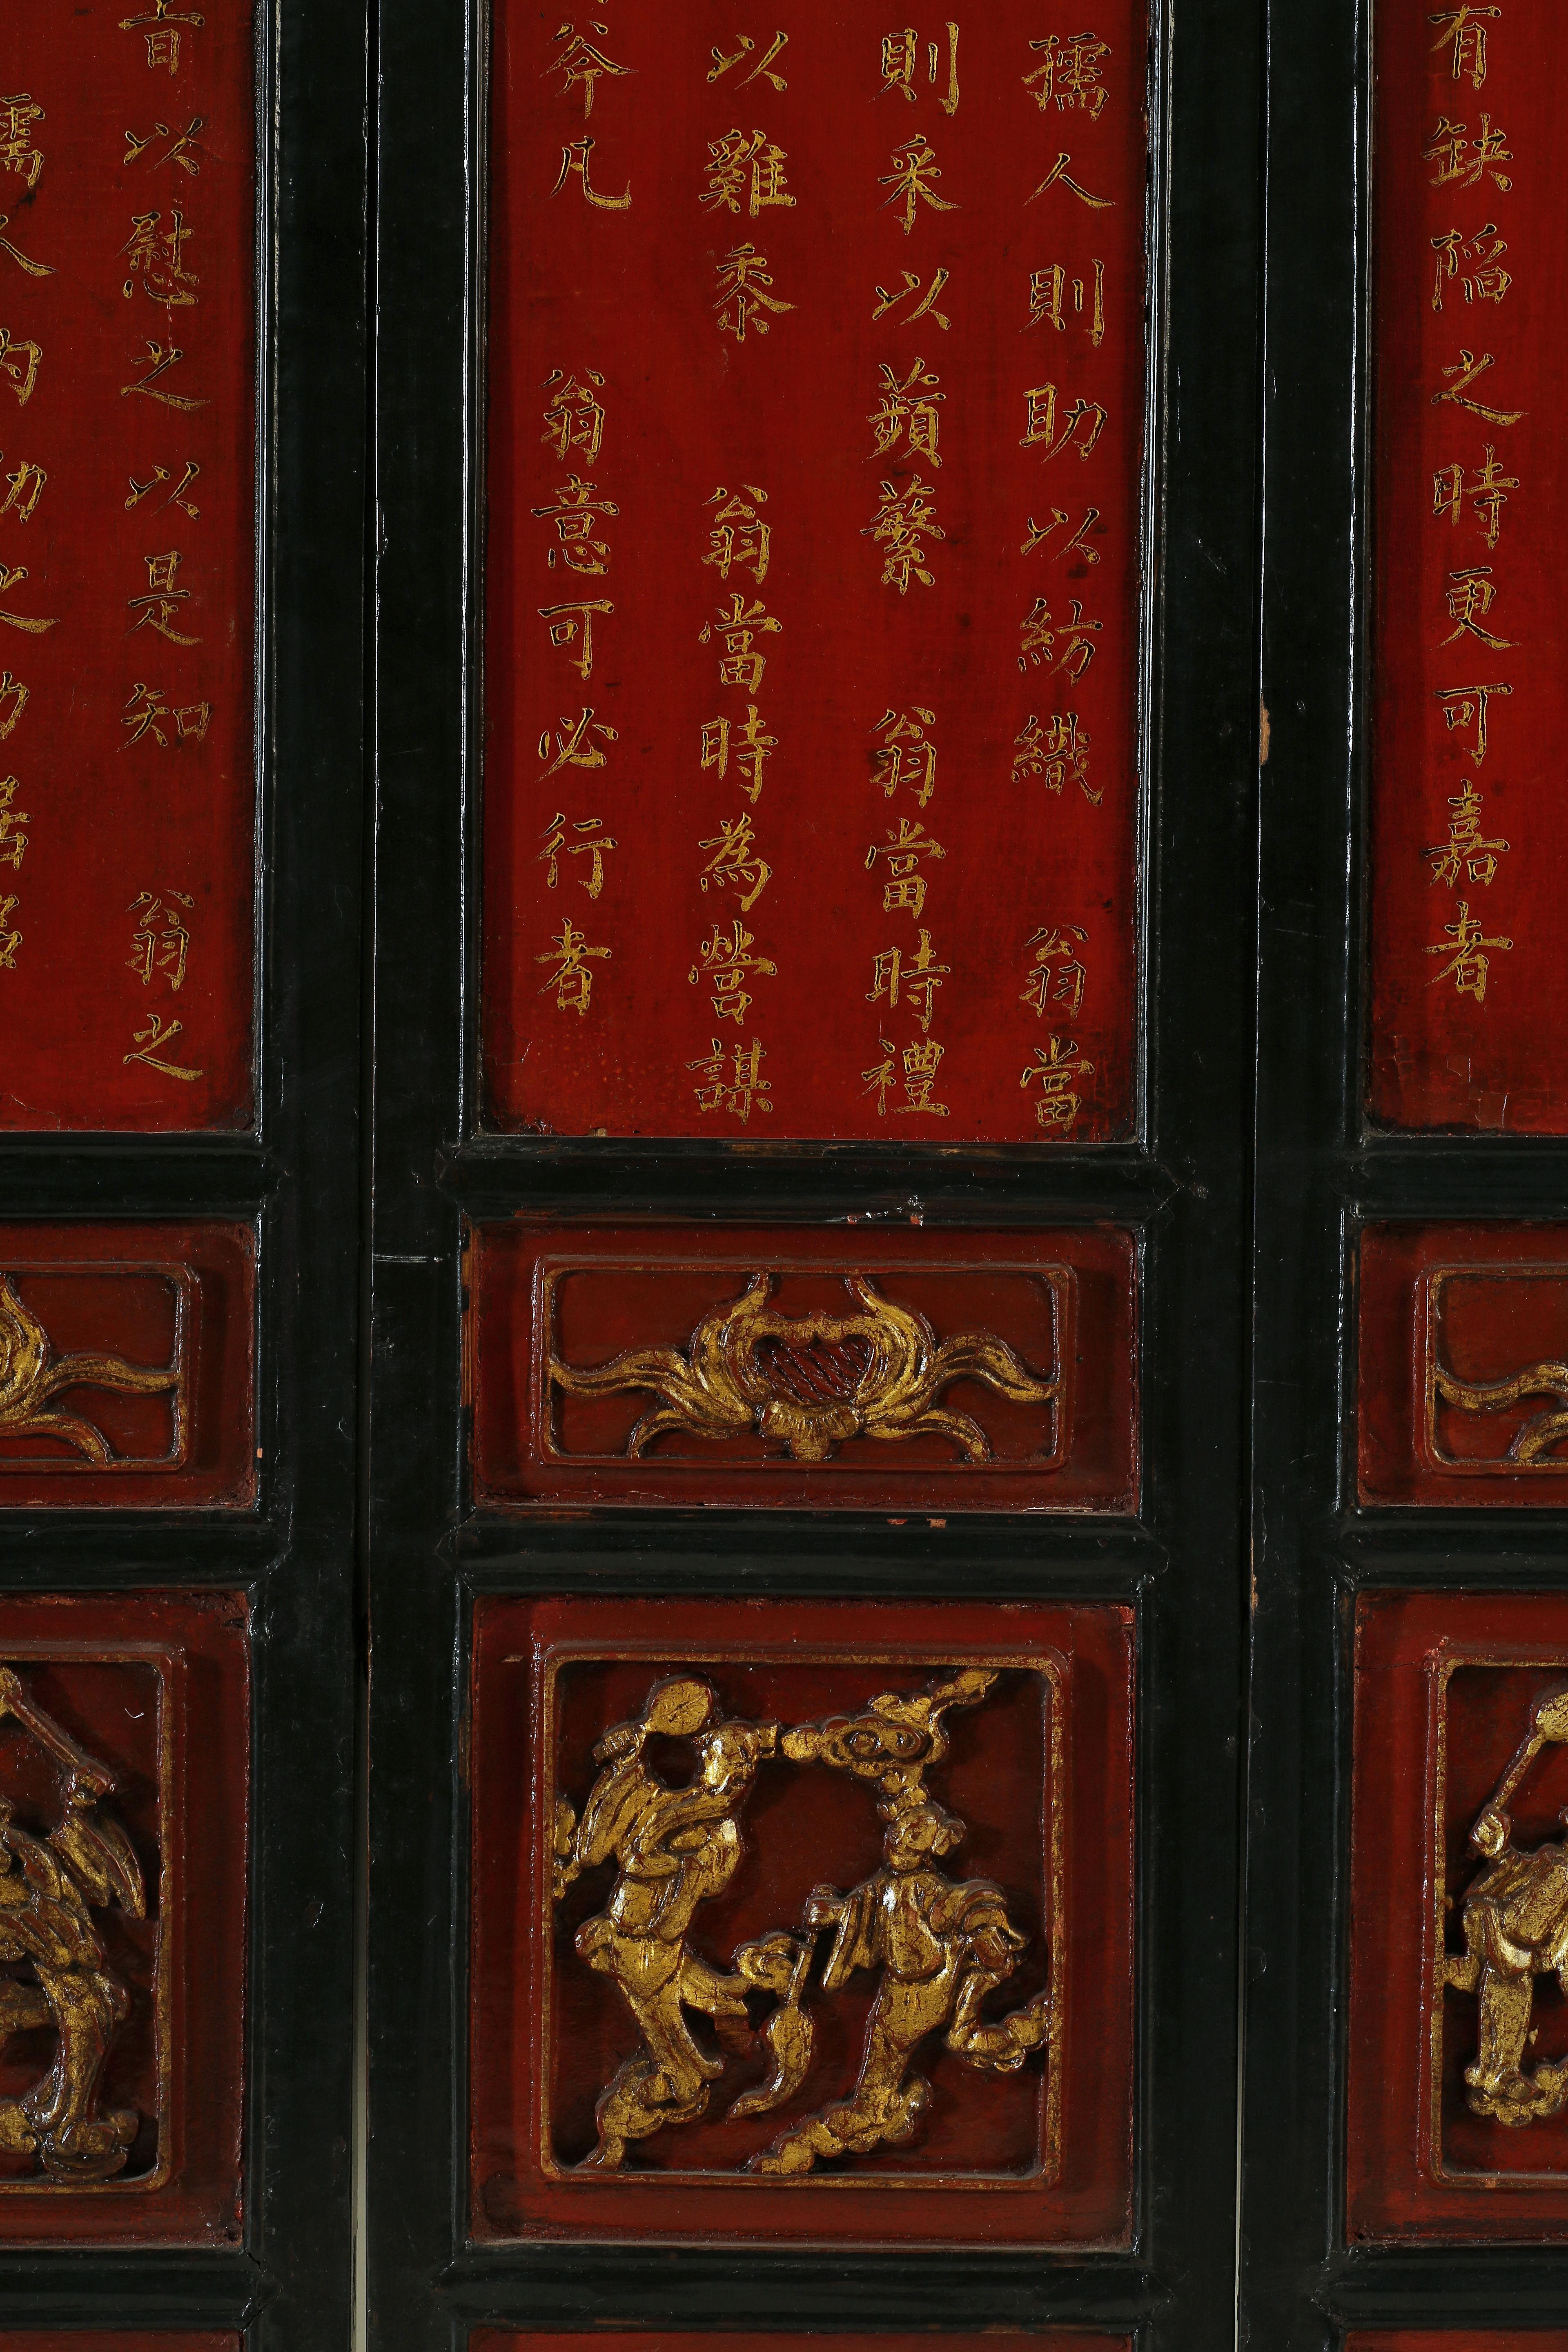 有缺陷之時更可嘉者
孺人則助以紡織　翁當
則采以蘋蘩　翁當時禮
以雞黍　翁當時為營謀
斧凡　翁意可必行者
音以慰之以是知　翁之
孺人內助之功居